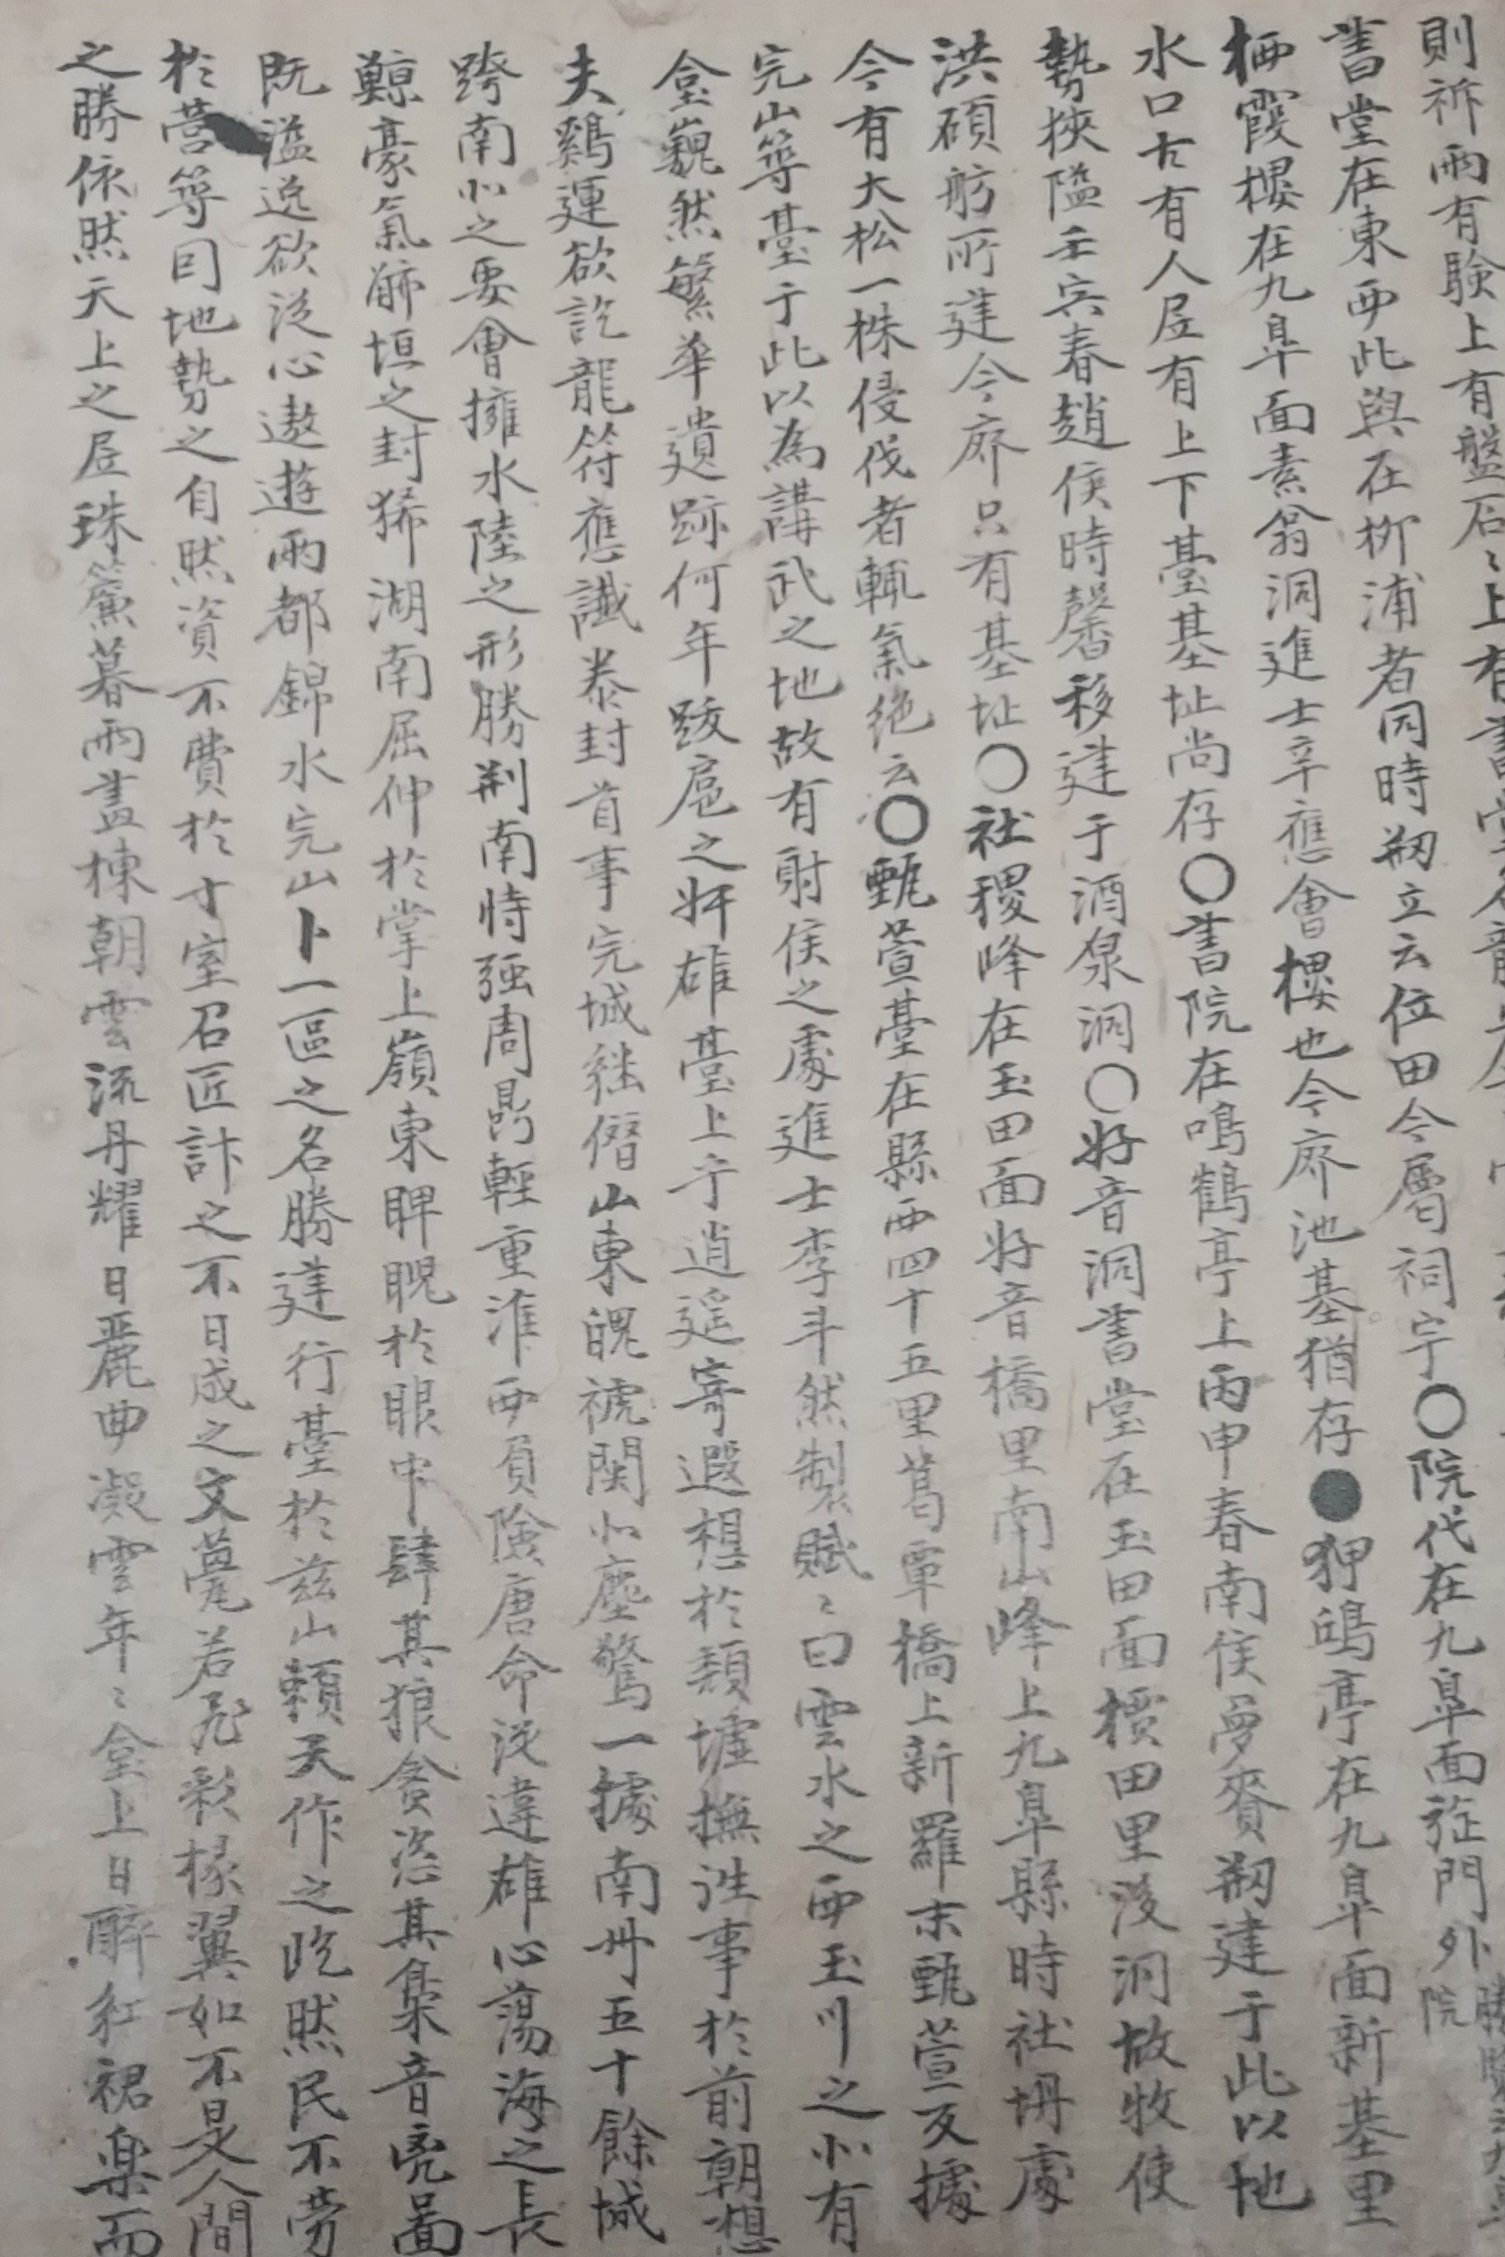 則祈雨有驗上有盤石〻上有書堂
書堂在東西此與在柳浦者同時刱立云位田今層祠宇〇院代在九臯面 門外 院
栖霞樓在九臯面素翁洞進士辛應會樓也今廢池基猶存●狎鷗亭在九臯面新基里
水口古有人居有上下基址尚存〇書院在鳴鶴亭上丙申春南侯夢賚刱建于此以地
勢挾隘壬寅春趙侯時馨移建于酒泉洞〇好音洞書堂在玉田面檟田里後洞故牧使
洪碩舫所建今廢只有基址〇社稷峰在玉田面好音橋里南山峰上九臯縣時社坍處
今有大松一株侵伐者輒氣絶云〇甄萱臺在縣西四十五里葛覃橋上新羅末甄萱叉據
完山等臺于此以為講武之地故有射侯之處進士李斗然製賦〻曰雲水之西玉川之北有
㙜巍然繁華遺跡何年跋扈之奸雄臺上乎逍遥寄遐想於頽墟撫徃事於前朝想
夫鷄運欲訖龍符應讖泰封首事完城継僭山東魄褫関北塵驚一據南州五十餘城
跨南北之要會擁水陸之形勝荆南恃强周鼎輕重淮西負険唐命從違雄心蕩海之長
鯨豪氣觤垣之封狶湖南屈伸於掌上嶺東睥睨於眼中肆其狼貪恣其梟音亮啚
既溢逸欲泛心遨遊兩都錦水完山卜一區之名勝建行臺於兹山賴天作之屹然民不劳
於营等因地勢之自然資不費於寸室召匠計之不日成之文甍若飛彩椽翼如不是人間
之勝依然天上之居珠簾暮雨畫棟朝雲流丹耀日麗曲凝雲年〻㙜上日醉紅裙楽而